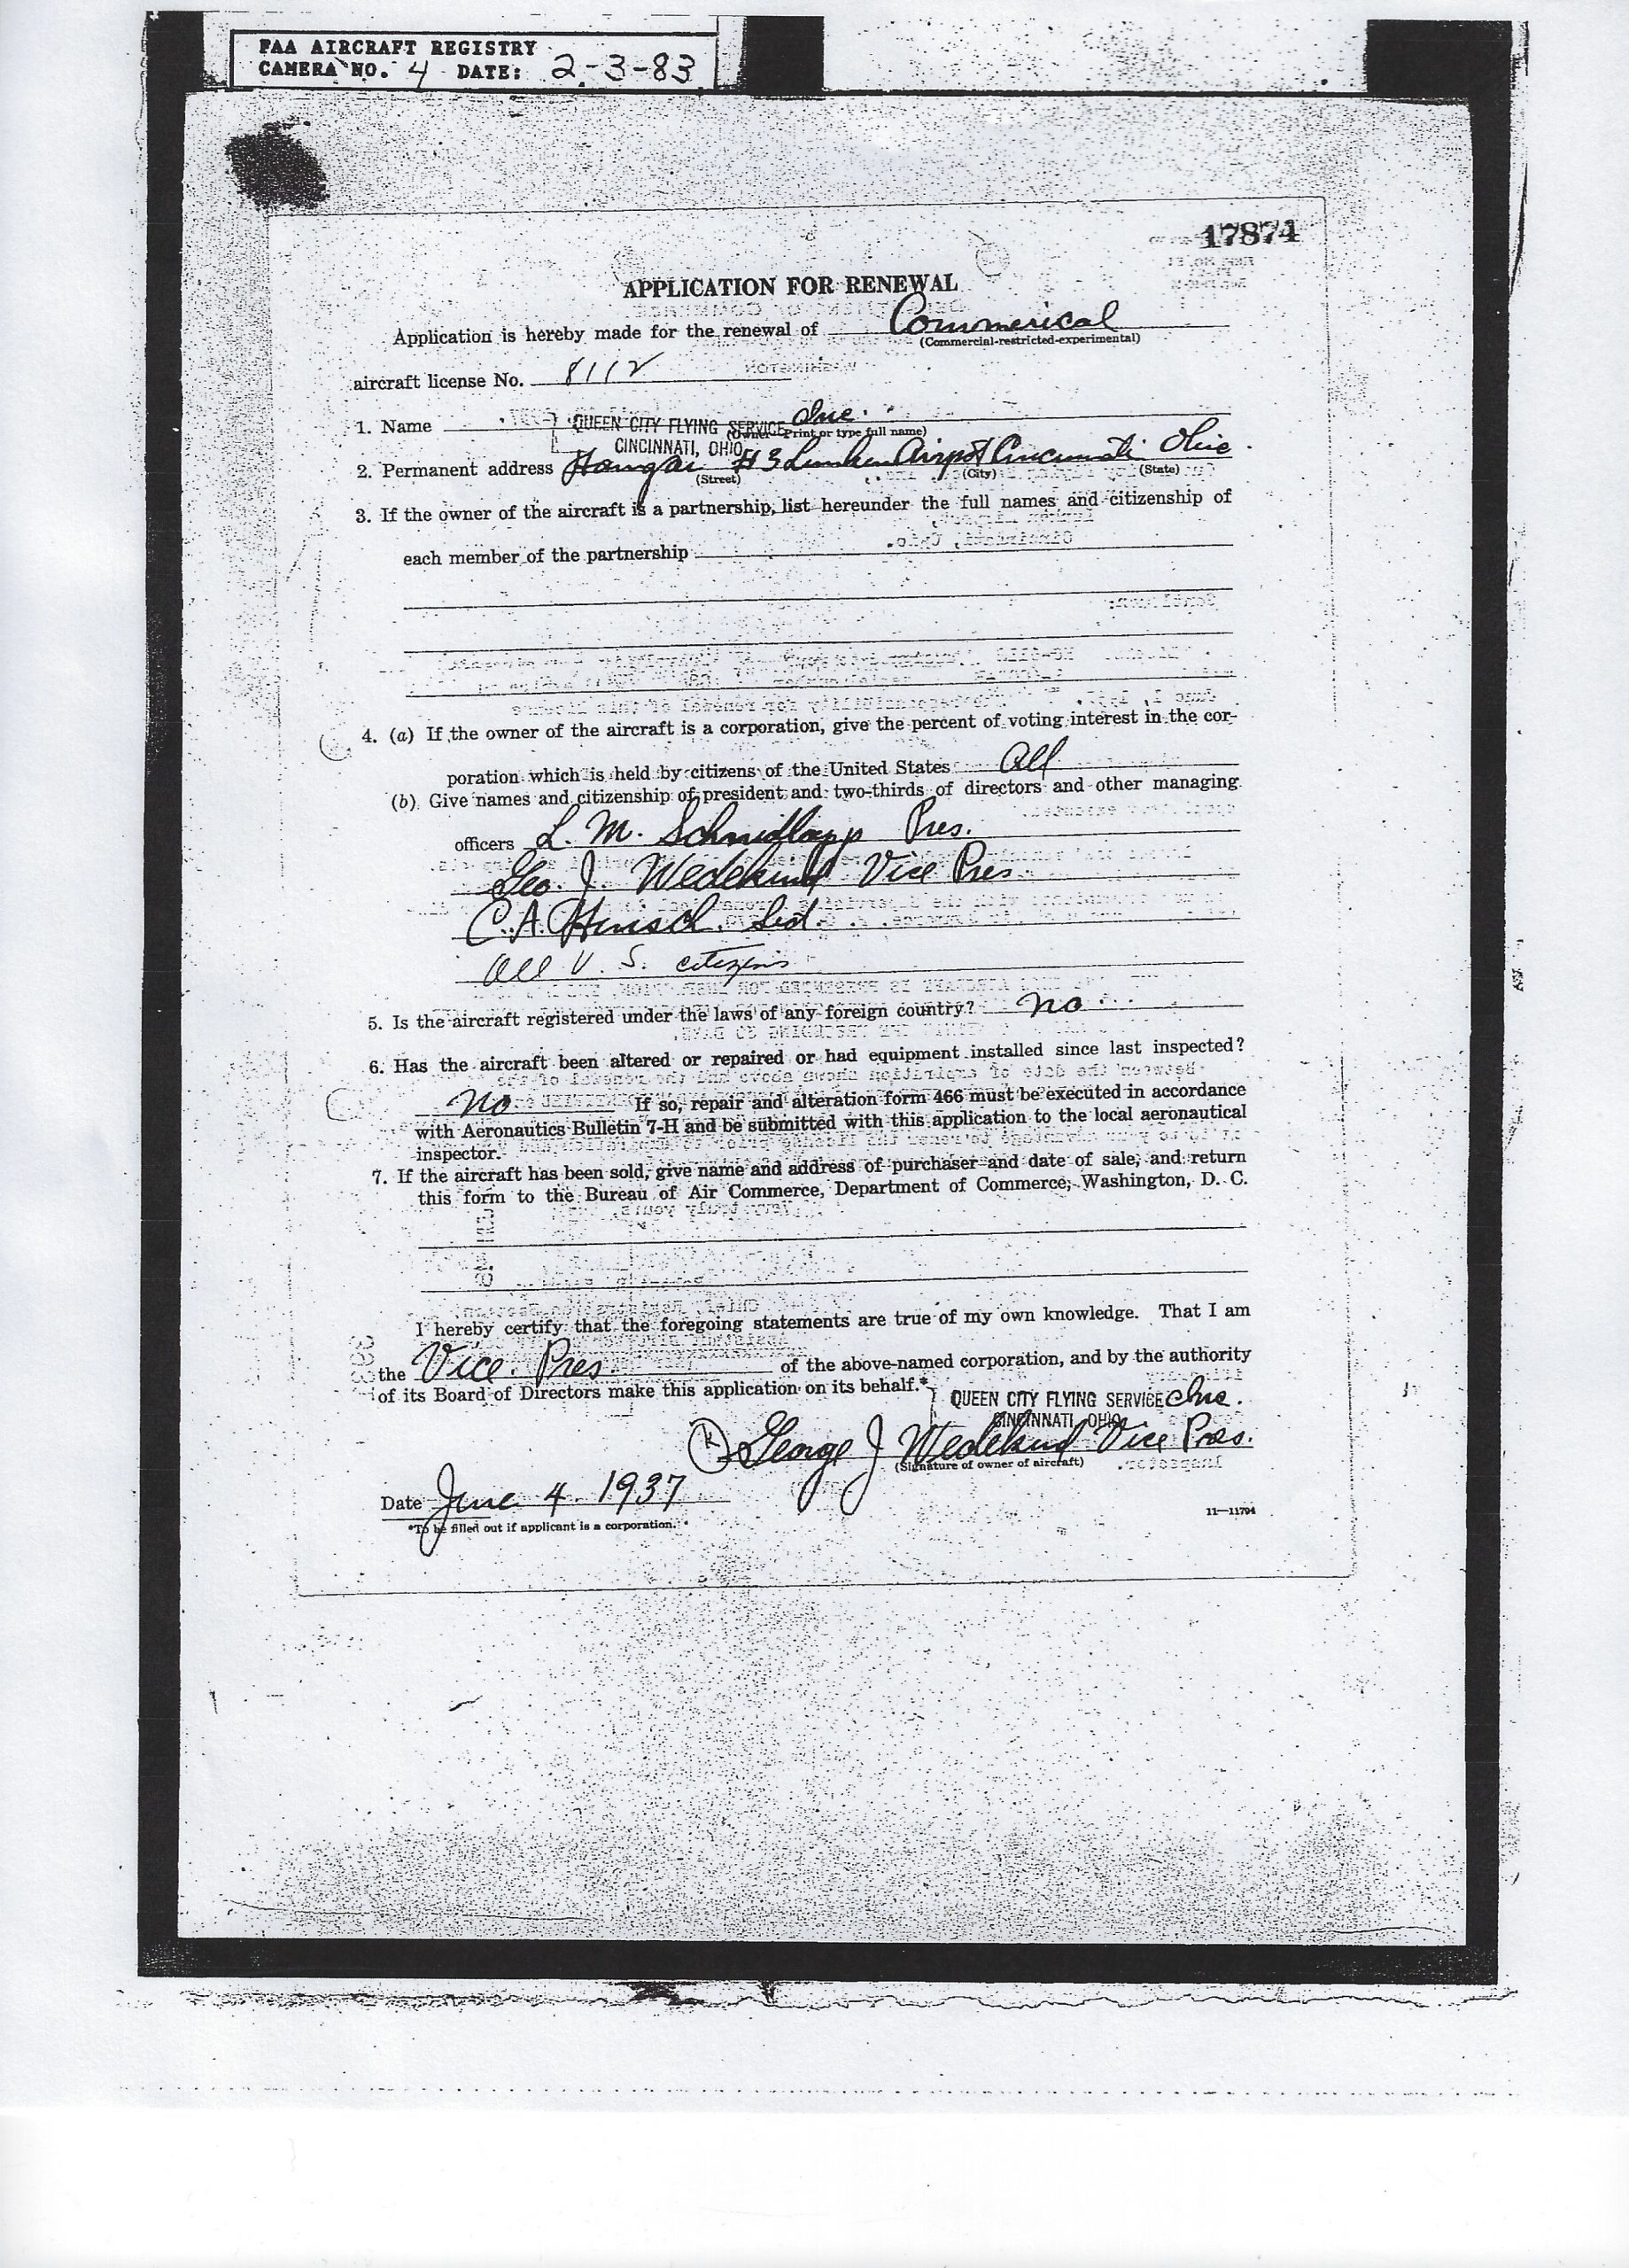 FAA AIRCRAFT REGISTRY
CAMERA NO. 4 DATE: 2-3-83
17874
APPLICATION FOR RENEWAL
Application is hereby made for the renewal of Commerical
(Commercial-restricted-experimental)
aircraft license No. 8112
1. Name QUEEN CITY FLYING SERVICE Inc.
(Owner—Print or type full name)
CINCINNATI, OHIO
2. Permanent address Hangar #3 Lunken Airpot Cincinnati Ohio
(Street) (City) (State)
3. If the owner of the aircraft is a partnership, list hereunder the full names and citizenship of
each member of the partnership
4. (a) If the owner of the aircraft is a corporation, give the percent of voting interest in the cor-
poration which is held by citizens of the United States All
(b) Give names and citizenship of president and two-thirds of directors and other managing
officers L. M. Schmidlapp Pres.
Geo. J. Wedekind Vice Pres.
C. A. Hinsch.
All U. S. citizens
5. Is the aircraft registered under the laws of any foreign country? no
6. Has the aircraft been altered or repaired or had equipment installed since last inspected?
no If so, repair and alteration form 466 must be executed in accordance
with Aeronautics Bulletin 7-H and be submitted with this application to the local aeronautical
inspector.
7. If the aircraft has been sold, give name and address of purchaser and date of sale, and return
this form to the Bureau of Air Commerce, Department of Commerce, Washington, D. C.
I hereby certify that the foregoing statements are true of my own knowledge. That I am
the Vice. Pres. of the above-named corporation, and by the authority
of its Board of Directors make this application on its behalf.*
QUEEN CITY FLYING SERVICE Inc.
CINCINNATI, OHIO
George J Wedekind Vice Pres.
(Signature of owner of aircraft)
Date June 4. 1937
*To be filled out if applicant is a corporation.
11—11794